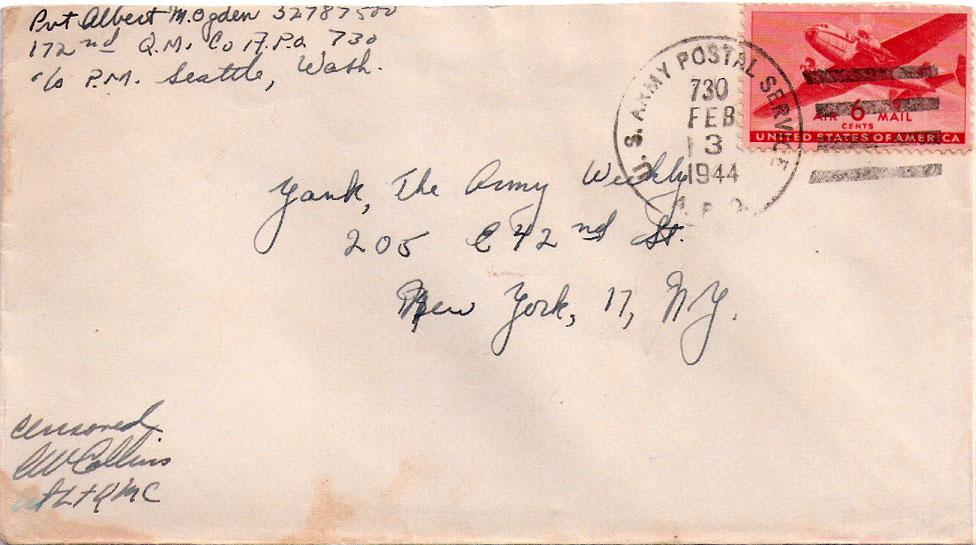 Pvt Albert M. Ogden 32787500
172nd Q.M. Co A.P.O. 730
c/o P.M. Seattle, Wash.
U. S. ARMY POSTAL SERVICE
730
FEB
13
1944
A. P. O.
AIR 6 MAIL
CENTS
UNITED STATES OF AMERICA
Yank, The Army Weekly
205 E 42nd St.
New York, 17, N.Y.
Censored
Collins